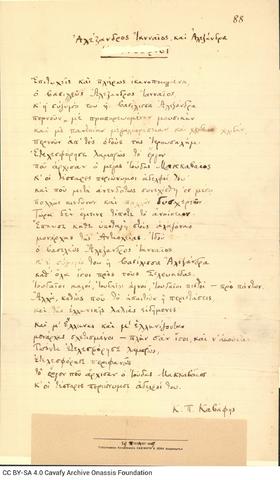 88
Ἀλέξανδρος Ἰανναῖος, καὶ Ἀλεξάνδρα
Ἐπιτυχεῖς καὶ πλήρως ἱκανοποιημένοι,
ὁ βασιλεὺς Ἀλέξανδρος Ἰανναῖος,
κ' ἡ σύζυγός του ἡ βασίλισσα Ἀλεξάνδρα
περνοῦν, μὲ προπορευομένην μουσικὴν
καὶ μὲ παντοίαν μεγαλοπρέπειαν καὶ χλιδήν,
περνοῦν ἀπ' τὲς ὁδοὺς τῆς Ἱερουσαλήμ.
Ἐτελεσφόρησε λαμπρῶς τὸ ἔργον
ποὺ ἄρχισαν ὁ μέγας Ἰούδας Μακκαβαῖος
κ' οἱ τέσσαρες περιώνυμοι ἀδελφοί του·
καὶ ποὺ μετὰ ἀνενδότως συνεχίσθη ἐν μέσῳ
πολλῶν κινδύνων καὶ πολλῶν δυσχερειῶν.
Τώρα δὲν ἔμεινε τίποτε τὸ ἀνοίκειον.
Ἔπαυσε κάθε ὑποταγὴ στοὺς ἀλαζόνας
μονάρχας τῆς Ἀντιοχείας. Ἰδοὺ
ὁ βασιλεὺς Ἀλέξανδρος Ἰανναῖος
κ' ἡ σύζυγός του ἡ βασίλισσα Ἀλεξάνδρα
καθ' ὅλα ἴσοι πρὸς τοὺς Σελευκίδας.
Ἰουδαῖοι καλοί, Ἰουδαῖοι ἁγνοί, Ἰουδαῖοι πιστοί — πρὸ πάντων.
Ἀλλά, καθὼς ποὺ τὸ ἀπαιτοῦν ἡ περιστάσεις,
καὶ τῆς ἑλληνικῆς λαλιᾶς εἰδήμονες·
καὶ μ' Ἕλληνας καὶ μ' ἑλληνίζοντας
μονάρχας σχετισμένοι — πλὴν σὰν ἴσοι, καὶ ν' ἀκούεται.
Τωόντι ἐτελεσφόρησε λαμπρῶς,
ἐτελεσφόρησε περιφανῶς
τὸ ἔργον ποὺ ἄρχισαν ὁ μέγας Ἰούδας Μακκαβαῖος
κ' οἱ τέσσαρες περιώνυμοι ἀδελφοί του.
Κ. Π. Καβάφης
CC BY-SA 4.0 Cavafy Archive Onassis Foundation